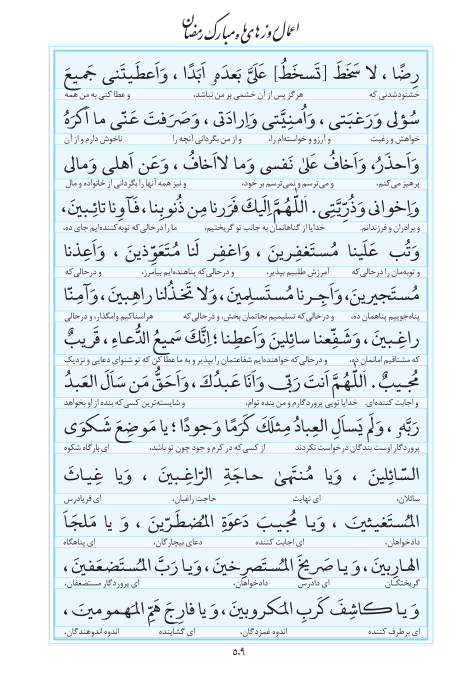 اعمال روزهای ماه مبارک رمضان
رِضًا ، لا سَخَطَ [تَسخَطُ] عَلَیَّ بَعدَهُ اَبَدًا ، وَاَعطَیتَنی جَمیعَ
خشنودشدنی که هرگز پس از آن خشمی بر من نباشد، و عطا کنی به من همه
سُؤلی وَرَغبَتی ، وَاُمنِیَّتی وَاِرادَتی ، وَصَرَفتَ عَنّی ما اَکرَهُ
خواهش و رغبت و آرزو و خواسته‌ام را، و از من بگردانی آنچه را ناخوش دارم و از آن
وَاَحذَرُ، وَاَخافُ عَلیٰ نَفسی وَما لااَخافُ ، وَعَن اَهلی وَمالی
پرهیز می‌کنم، و می‌ترسم و نمی‌ترسم بر خود، و نیز همه آنها را بگردانی از خانواده و مال
وَاِخوانی وَذُرِّیَّتی. اَللّٰهُمَّ اِلَیكَ فَرَرنا مِن ذُنوبِنا، فَـآوِنا تائِبینَ،
و برادران و فرزندانم. خدایا از گناهانمان به جانب تو گریختیم، ما را درحالی‌که توبه‌کننده‌ایم جای ده،
وَتُب عَلَینا مُستَغفِرینَ ، وَاغفِر لَنا مُتَعَوِّذینَ ، وَاَعِذنا
و توبه‌مان را درحالی‌که آمرزش طلبیم بپذیر، و درحالی‌که پناهنده‌ایم بیامرز، و درحالی‌که
مُستَجیرینَ، وَاَجِـرنا مُستَسلِمینَ، وَلا تَخذُلنا راهِبینَ، وَآمِنّا
پناه‌جوییم پناهمان ده، و درحالی‌که تسلیمیم نجاتمان بخش، و درحالی‌که هراسناکیم وامگذار، و درحالی
راغِبینَ، وَشَفِّعنا سائِلینَ وَاَعطِنا ؛ اِنَّكَ سَمیعُ الدُّعاءِ، قَریبٌ
که مشتاقیم امانمان ده، و درحالی‌که خواهنده‌ایم شفاعتمان را بپذیر و به ما عطا کن که تو شنوای دعایی و نزدیک
مُجیبٌ. اَللّٰهُمَّ اَنتَ رَبّی وَاَنَا عَبدُكَ ، وَاَحَقُّ مَن سَاَلَ العَبدُ
و اجابت کننده‌ای. خدایا تویی پروردگارم و من بنده توام، و شایسته‌ترین کسی‌که بنده از او بخواهد
رَبَّهُ ، وَلَم یَسأَلِ العِبادُ مِثلَكَ کَرَمًا وَجودًا ؛ یا مَوضِعَ شَکوَی
پروردگار اوست بندگان درخواست نکردند از کسی‌که در کرم و جود چون تو باشد، ای بارگاه شکوه
السّائِلینَ ، وَیا مُنتَهیٰ حاجَةِ الرّاغِبینَ ، وَیا غِیاثَ
سائلان، ای نهایت حاجت راغبان، ای فریادرس
المُستَغیثینَ ، وَیا مُجیبَ دَعوَةِ المُضطَرّینَ ، وَ یا مَلجَأَ
دادخواهان، ای اجابت کننده دعای بیچارگان، ای پناهگاه
الهارِبینَ، وَیـا صَریخَ المُستَصرِخینَ، وَیـا رَبَّ المُستَضعَفینَ،
گریختگـان ای دادرس دادخواهان، ای پروردگار مستضعفان،
وَ یـا کـاشِفَ کَربِ المَکروبینَ، وَ یا فارِجَ هَمِّ المَهمومینَ ،
ای برطرف کننده اندوه غمزدگان، ای گشاینده اندوه اندوهندگان،
۵۰۹